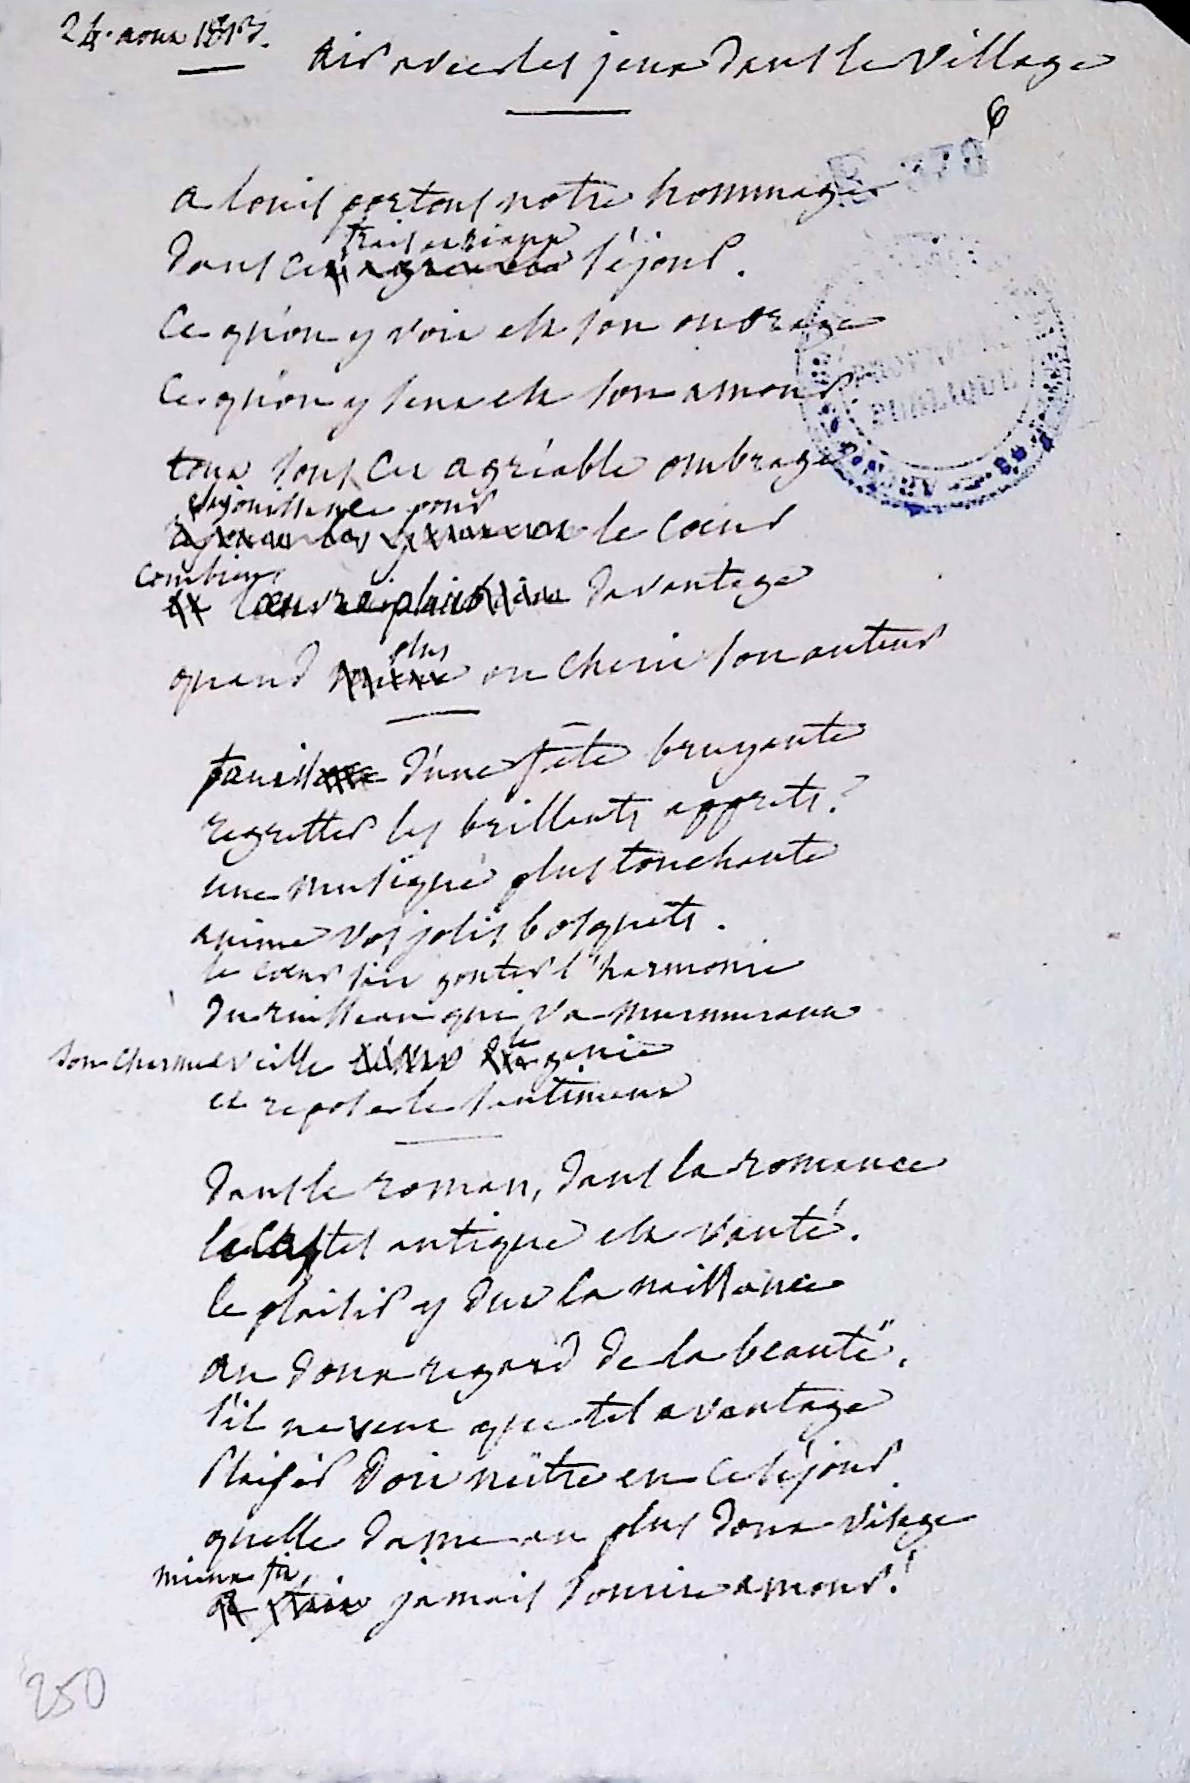 24. aout 1813.
Air avec les jeux dans le Village
6
B 378
a louis portons notre hommage
frais et riant
dans ce séjour.
Ce qu'on y voit est son ouvrage
Ce qu'on y sent est son amour
PROVINCE
PUBLIQUE
tout sous cet agréable ombrage
est jouissance pour
le coeur
combien
l'oeuvre plait davantage
plus
quand on cherit son auteur
faut il d'une fête bruyante
regretter les brillants apprets?
une musique plus touchante
anime vos jolis bosquets.
le coeur sait gouter l'harmonie
du ruisseau qui va murmurant
son charme eveille le genie
et repose le sentiment
dans le roman, dans la romance
le castel antique est vanté.
le plaisir y dut la naissance
au doux regard de la beauté.
s'il ne veut que tel avantage
Plaisir doit naitre en ce séjour.
quelle dame au plus doux visage
mieux fit
jamais sourire amour!
250